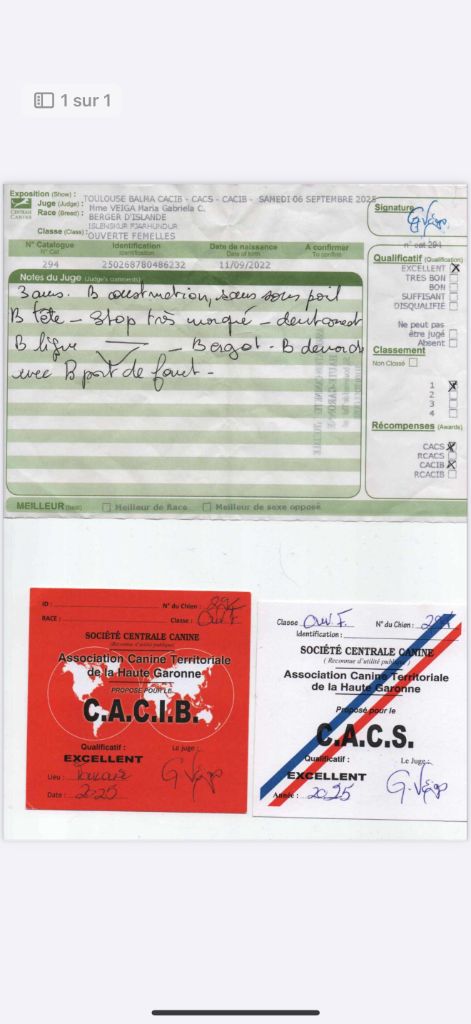 1 sur 1
Exposition (Show) : TOULOUSE BALMA CACIB - CACS - CACIB - SAMEDI 06 SEPTEMBRE 2025
Juge (Judge) : Mme VEIGA Maria Gabriela C.
Race (Breed) : BERGER D'ISLANDE
ISLENSKUR FJARHUNDUR
Classe (Class) : OUVERTE FEMELLES
CENTRALE CANINE
Signature
G. Veiga
N° Catalogue
N° Cat
Identification
Identification
Date de naissance
Date of birth
A confirmer
To confirm
n° cat 294
294 250268780486232 11/09/2022
Notes du Juge (Judge's comments)
3 ans. B construction, sous poil
B tête - Stop très marqué -
B ligne
avec B port de fouet -
Qualificatif (Qualification)
EXCELLENT X
TRES BON
BON
SUFFISANT
DISQUALIFIE
Ne peut pas
être jugé
Absent
Classement
Non Classé
1 X
2
3
4
Récompenses (Awards)
CACS X
RCACS
CACIB X
RCACIB
MEILLEUR (Best) Meilleur de Race Meilleur de sexe opposé
ID : N° du Chien : 294
RACE : Classe : Ouv F
SOCIÉTÉ CENTRALE CANINE
(Reconnue d'utilité publique)
Association Canine Territoriale
de la Haute Garonne
PROPOSÉ POUR LE
C.A.C.I.B.
Qualificatif : Le juge :
EXCELLENT
G Veiga
Lieu : Toulouse
Date : 2025
Classe Ouv. F N° du Chien : 294
Identification :
SOCIÉTÉ CENTRALE CANINE
(Reconnue d'utilité publique)
Association Canine Territoriale
de la Haute Garonne
Proposé pour le
C.A.C.S.
Qualificatif : Le Juge :
EXCELLENT
G. Veiga
Année : 2025